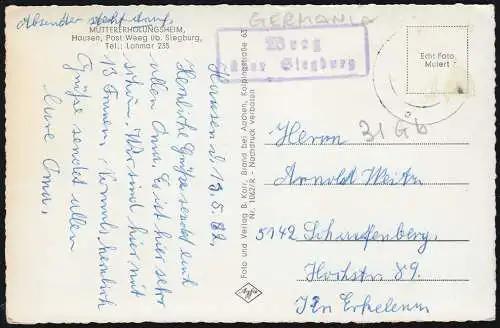 Absender steht drauf,
MÜTTERERHOLUNGSHEIM,
Hausen, Post Weeg üb. Siegburg,
Tel.: Lohmar 235
Hausen d. 13.5.62.
Herzliche Grüße sendet euch
allen Oma. Es ist hier sehr
schön. Wir sind hier mit
13 Frauen,
Grüße sendet allen
Eure Oma.
Foto und Verlag B. Korr, Brand bei Aachen, Kolpingstraße 63
Nr. 1062/R - Nachdruck verboten
Agfa
GERMANIA
Weeg
über Siegburg
Echt Foto
Mulert
31 Gb
Herrn
Arnold
5142 Schaufenberg.
Hochstr. 89.
Krs Erkelenz